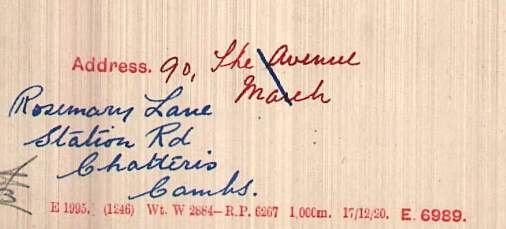 Address. 90, The Avenue
March
Rosemary Lane
Station Rd
Chatteris
Cambs.
E 1995. (1246) Wt. W 2884—R.P. 6267 1,000m. 17/12/20. E. 6989.